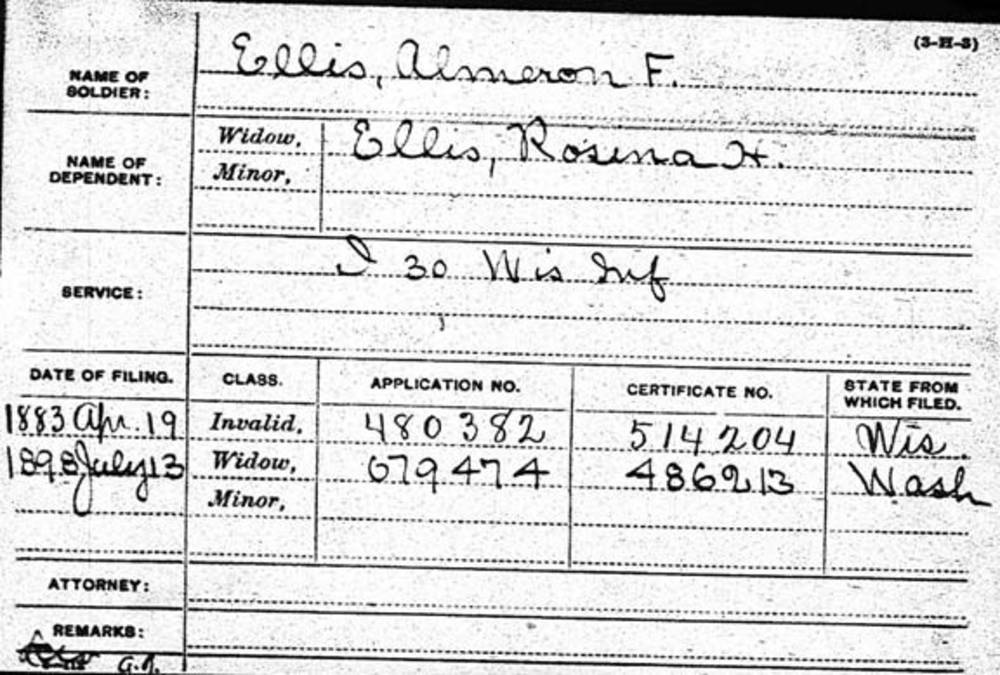 (3-H-3)
NAME OF SOLDIER: Ellis, Almeron F.
NAME OF DEPENDENT: Widow, Ellis, Rosina H.
Minor,
SERVICE: I 30 Wis Inf
DATE OF FILING. CLASS. APPLICATION NO. CERTIFICATE NO. STATE FROM WHICH FILED.
1883 Apr. 19 Invalid, 480 382 514 204 Wis.
1898 July 13 Widow, 679 474 486213 Wash
Minor,
ATTORNEY:
REMARKS: